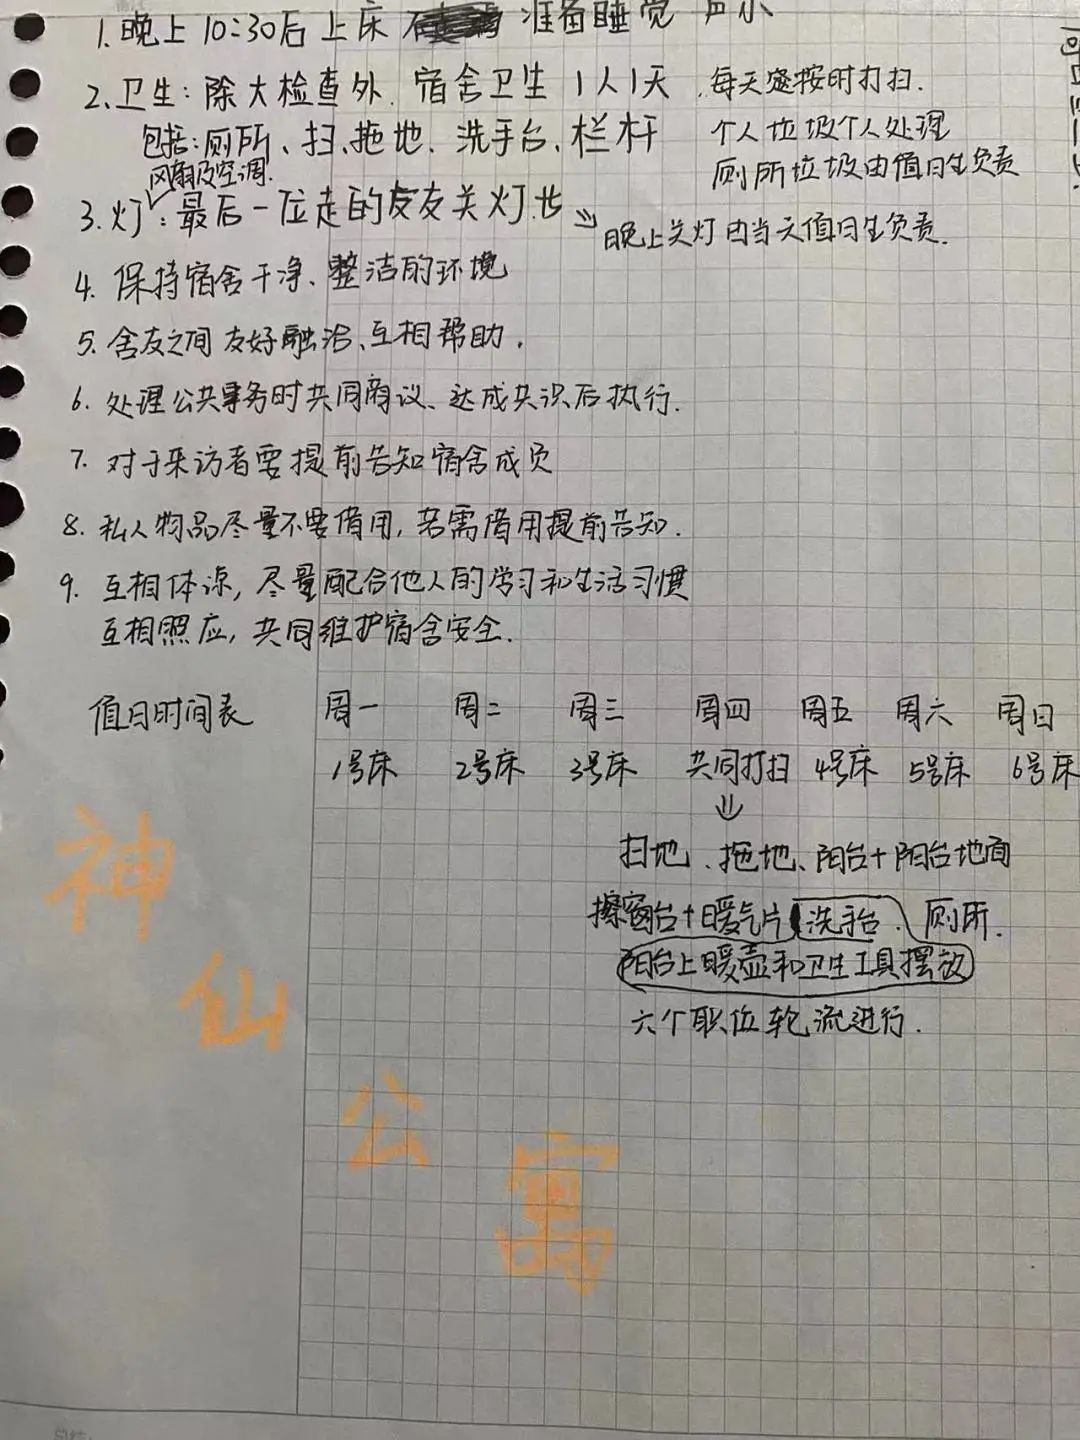 1. 晚上 10:30后 上床 准备睡觉 声小
2. 卫生: 除大检查外. 宿舍卫生 1人1天 . 每天应按时打扫.
包括: 厕所、扫、拖地、洗手台、栏杆
个人垃圾个人处理
厕所垃圾由值日生负责
风扇及空调.
3. 灯: 最后一位走的友友关灯.
晚上关灯由当天值日生负责.
4. 保持宿舍干净、整洁的环境
5. 舍友之间友好融洽、互相帮助.
6. 处理公共事务时共同商议、达成共识后执行.
7. 对于来访者要提前告知宿舍成员
8. 私人物品尽量不要借用, 若需借用提前告知.
9. 互相体谅, 尽量配合他人的学习和生活习惯
互相照应, 共同维护宿舍安全.
值日时间表 周一 周二 周三 周四 周五 周六 周日
1号床 2号床 3号床 共同打扫 4号床 5号床 6号床
扫地、拖地、阳台+阳台地面
擦窗台+暖气片 洗手台、厕所.
阳台上暖壶和卫生工具摆放
六个职位轮流进行.
神
仙
公
寓